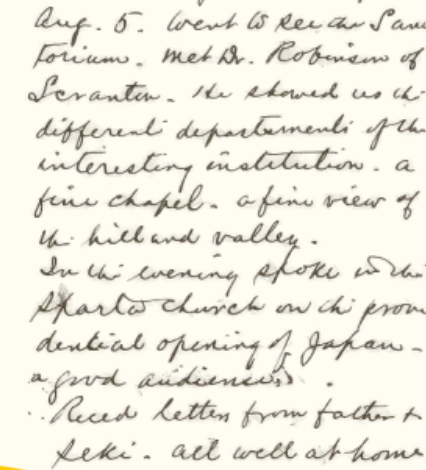 Aug. 5. Went to see the Sana
torium. Met Dr. Robinson of
Scranton. He showed us the
different departments of the
interesting institution. a
fine chapel. a fine view of
the hill and valley.
In the evening spoke in the
Sparta church on the provi
dential opening of Japan -
a good audience.
Recd letters from father &
Seki. all well at home